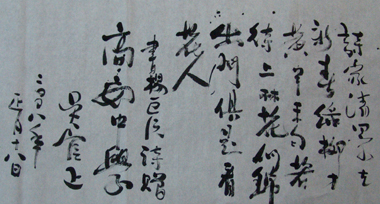 詩家清景在
新春綠柳才
黄半未匀若
待上林花似錦
出門俱是看
花人
書楊巨源詩贈
高安中學
吴官正
二〇〇八年
正月十八日